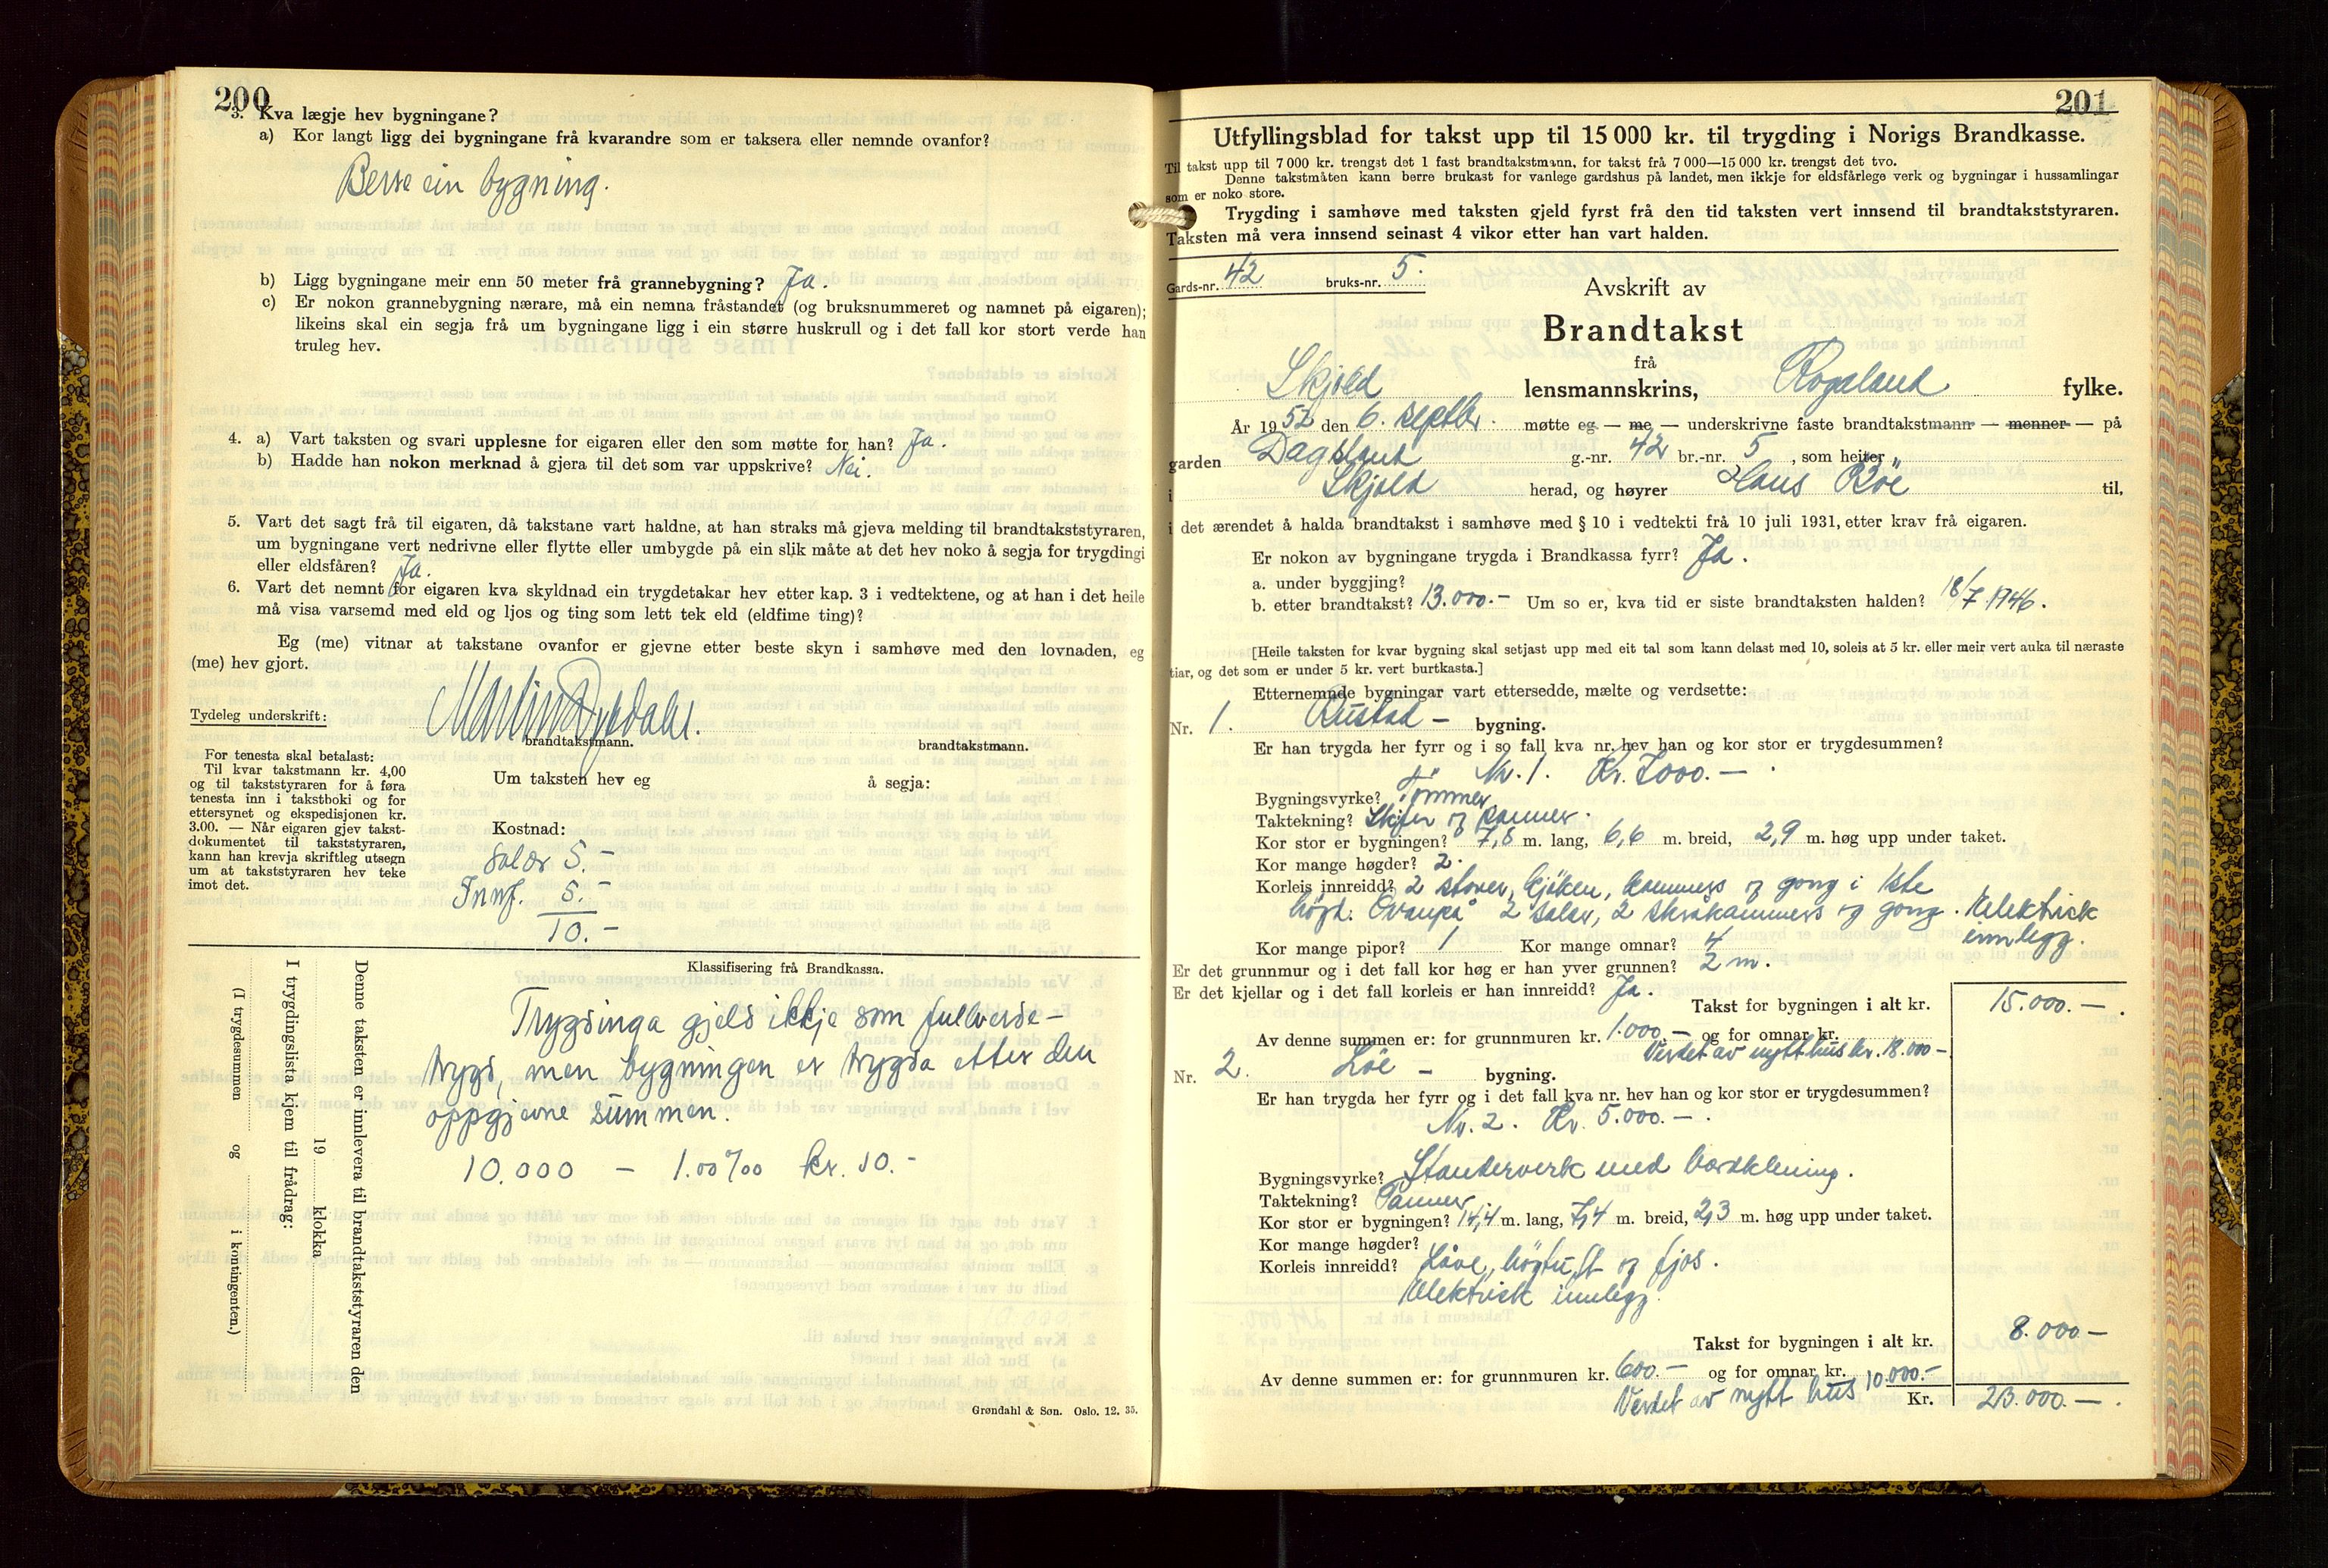 200
3. Kva lægje hev bygningane?
a) Kor langt ligg dei bygningane frå kvarandre som er taksera eller nemnde ovanfor?
Berre ein bygning.
b) Ligg bygningane meir enn 50 meter frå grannebygning? Ja.
c) Er nokon grannebygning nærare, må ein nemna fråstandet (og bruksnummeret og namnet på eigaren);
likeins skal ein segja frå um bygningane ligg i ein større huskrull og i det fall kor stort verde han
truleg hev.
4. a) Vart taksten og svari upplesne for eigaren eller den som møtte for han? Ja.
b) Hadde han nokon merknad å gjera til det som var uppskrive? Nei.
5. Vart det sagt frå til eigaren, då takstane vart haldne, at han straks må gjeva melding til brandtakststyraren,
um bygningane vert nedrivne eller flytte eller umbygde på ein slik måte at det hev noko å segja for trygdingi
eller eldsfåren? Ja.
6. Vart det nemnt for eigaren kva skyldnad ein trygdetakar hev etter kap. 3 i vedtektene, og at han i det heile
må visa varsemd med eld og ljos og ting som lett tek eld (eldfime ting)?
Eg (me) vitnar at takstane ovanfor er gjevne etter beste skyn i samhøve med den lovnaden, eg
(me) hev gjort.
Tydeleg underskrift:
Martin
brandtakstmann. brandtakstmann.
For tenesta skal betalast:
Til kvar takstmann kr. 4,00
og til takststyraren for å føra
tenesta inn i takstboki og for
ettersynet og ekspedisjonen kr.
3.00. — Når eigaren gjev takst-
dokumentet til takststyraren,
kann han krevja skriftleg utsegn
um at takststyraren hev teke
imot det.
Um taksten hev eg å segja:
Kostnad:
Salær 5.-
Innf. 5.-
10.-
Klassifisering frå Brandkassa.
Trygdinga gjeld ikkje som fullverde-
trygd, men bygningen er trygda etter den
oppgjevne summen.
10.000 - 1.00‰ kr. 10.-
Denne taksten er innlevera til brandtakststyraren den
19 klokka
I trygdingslista kjem til frådrag:
(I trygdesummen og i kontingenten.)
Grøndahl & Søn. Oslo. 12. 35.
201
Utfyllingsblad for takst upp til 15 000 kr. til trygding i Norigs Brandkasse.
Til takst upp til 7 000 kr. trengst det 1 fast brandtakstmann, for takst frå 7 000—15 000 kr. trengst det tvo.
Denne takstmåten kann berre brukast for vanlege gardshus på landet, men ikkje for eldsfårlege verk og bygningar i hussamlingar
som er noko store.
Trygding i samhøve med taksten gjeld fyrst frå den tid taksten vert innsend til brandtakststyraren.
Taksten må vera innsend seinast 4 vikor etter han vart halden.
Gards-nr. 42 bruks-nr. 5.
Avskrift av
Brandtakst
frå
Skjold lensmannskrins, Rogaland fylke.
År 1952 den 6. septbr. møtte eg — me — underskrivne faste brandtakstmann — menner — på
garden Dagsland g.-nr. 42 br.-nr. 5, som heiter "
i Skjold herad, og høyrer Hans Böe til,
i det ærendet å halda brandtakst i samhøve med § 10 i vedtekti frå 10 juli 1931, etter krav frå eigaren.
Er nokon av bygningane trygda i Brandkassa fyrr? Ja.
a. under byggjing?
b. etter brandtakst? 13.000.- Um so er, kva tid er siste brandtaksten halden? 18/7 1946.
[Heile taksten for kvar bygning skal setjast upp med eit tal som kann delast med 10, soleis at 5 kr. eller meir vert auka til næraste
tiar, og det som er under 5 kr. vert burtkasta.]
Etternemnde bygningar vart ettersedde, mælte og verdsette:
Nr. 1. Bustad - bygning.
Er han trygda her fyrr og i so fall kva nr. hev han og kor stor er trygdesummen?
Nr. 1. Kr. 7000.-
Bygningsvyrke? Tömmer
Taktekning? Skifer og panner.
Kor stor er bygningen? 7,8 m. lang, 6,6 m. breid, 2,9 m. høg upp under taket.
Kor mange høgder? 2.
Korleis innreidd? 2 stover, kjöken, kammers og gang i 1ste
högd. Ovanpå 2 salar, 2 skråkammers og gang. Elektrisk
innlegg.
Kor mange pipor? 1 Kor mange omnar? 4
Er det grunnmur og i det fall kor høg er han yver grunnen? 2 m.
Er det kjellar og i det fall korleis er han innreidd? Ja.
Takst for bygningen i alt kr. 15.000.-
Av denne summen er: for grunnmuren kr. 1.000.- og for omnar kr.
Verdet av nytt hus kr. 18.000-
Nr. 2. Löe - bygning.
Er han trygda her fyrr og i det fall kva nr. hev han og kor stor er trygdesummen?
Nr. 2. Kr. 5.000.-
Bygningsvyrke? Standerverk med bordkledning.
Taktekning? Panner
Kor stor er bygningen? 14,4 m. lang, 7,4 m. breid, 2,3 m. høg upp under taket.
Kor mange høgder?
Korleis innreidd? Låve, og fjos.
Elektrisk innlegg.
Takst for bygningen i alt kr. 8.000-
Av denne summen er: for grunnmuren kr. 600.- og for omnar kr.
Verdet av nytt hus 10.000.-
Kr. 23.000.-